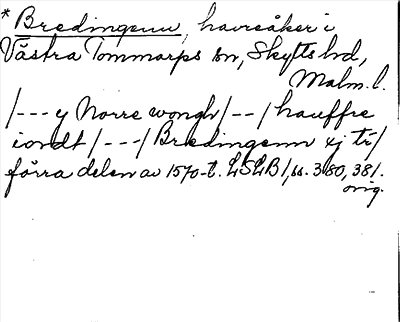 * Bredingenn, havreåker i
Västra Tommarps sn, Skytts hd,
Malm. l.
/--- y Norre wongh /--/ hauffre
iordt /---/ Bredingenn xj tr/
förra delen av 1570-t. LSLB 1, ss. 380, 381.
orig.